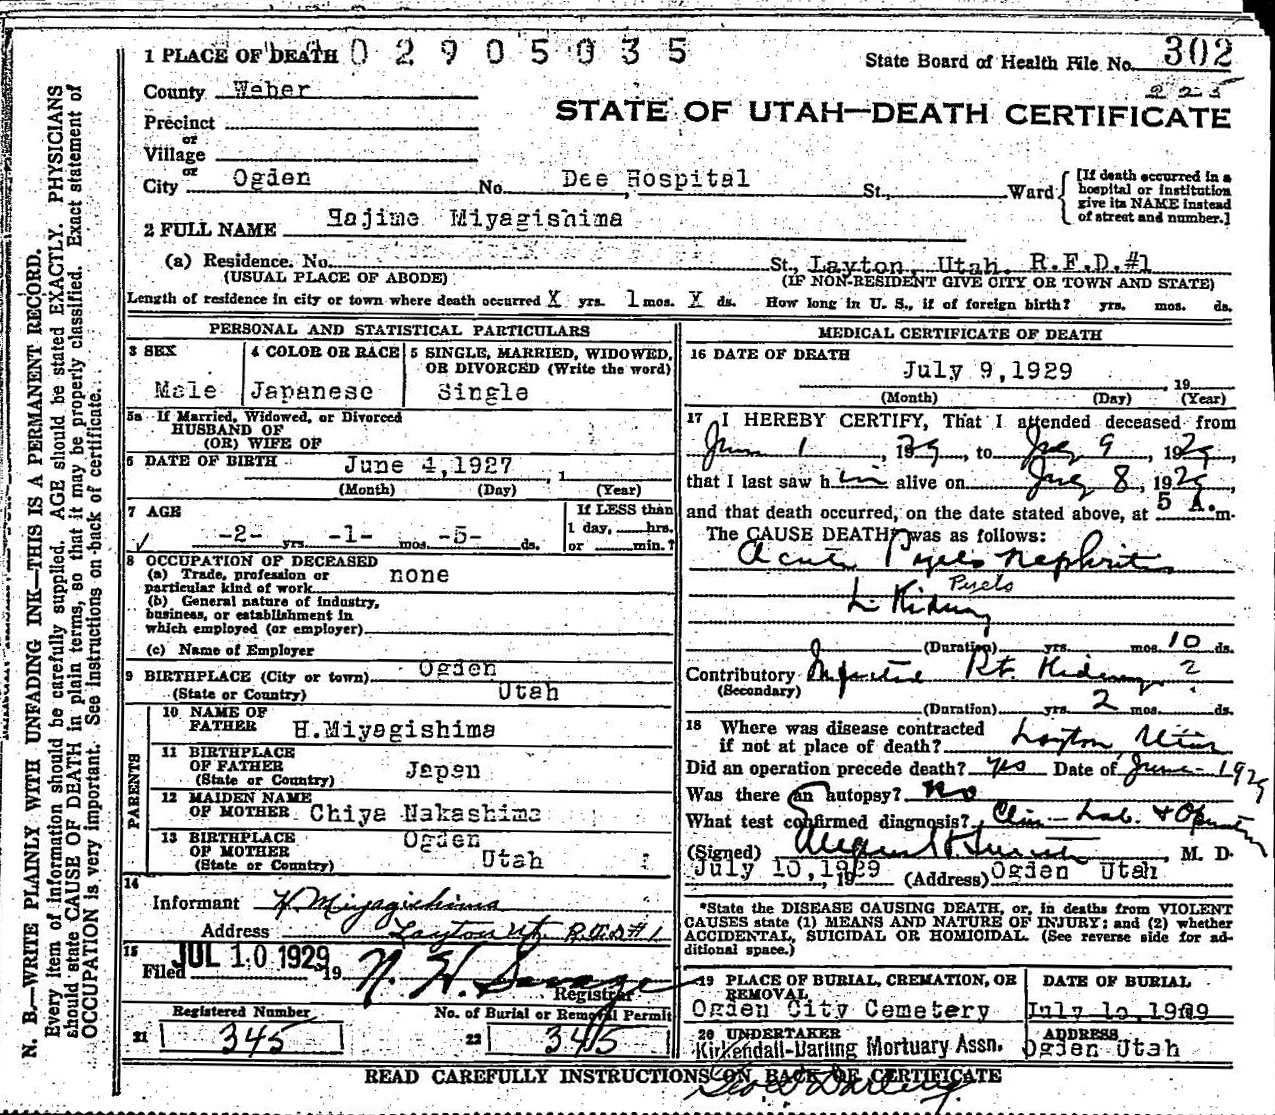 1 PLACE OF DEATH 02905035
State Board of Health File No. 302
225
County Weber
STATE OF UTAH—DEATH CERTIFICATE
Precinct
or
Village
or
City Ogden No. Dee Hospital St., Ward
[If death occurred in a
hospital or institution
give its NAME instead
of street and number.]
2 FULL NAME Hajime Miyagishima
(a) Residence. No. St., Layton, Utah. R.F.D.#1
(USUAL PLACE OF ABODE) (IF NON-RESIDENT GIVE CITY OR TOWN AND STATE)
Length of residence in city or town where death occurred X yrs. 1 mos. X ds. How long in U. S., if of foreign birth? yrs. mos. ds.
PERSONAL AND STATISTICAL PARTICULARS
3 SEX
Male
4 COLOR OR RACE
Japanese
5 SINGLE, MARRIED, WIDOWED,
OR DIVORCED (Write the word)
Single
5a If Married, Widowed, or Divorced
HUSBAND OF
(OR) WIFE OF
6 DATE OF BIRTH June 4,1927 , 1
(Month) (Day) (Year)
7 AGE
-2- yrs. -1- mos. -5- ds.
If LESS than
1 day, hrs.
or min.?
8 OCCUPATION OF DECEASED
(a) Trade, profession or
particular kind of work none
(b) General nature of industry,
business, or establishment in
which employed (or employer)
(c) Name of Employer
9 BIRTHPLACE (City or town) Ogden
(State or Country) Utah
PARENTS
10 NAME OF
FATHER H.Miyagishima
11 BIRTHPLACE
OF FATHER
(State or Country) Japan
12 MAIDEN NAME
OF MOTHER Chiya Nakashima
13 BIRTHPLACE
OF MOTHER Ogden
(State or Country) Utah
14
Informant H Miyagishima
Address Layton Ut. R.F.D#1
15
Filed JUL 10 1929 19 N. H. Savage
Registrar
Registered Number
21 345
No. of Burial or Removal Permit
22 345
MEDICAL CERTIFICATE OF DEATH
16 DATE OF DEATH
July 9,1929 , 19
(Month) (Day) (Year)
17 I HEREBY CERTIFY, That I attended deceased from
June 1, 1929, to July 9, 1929,
that I last saw him alive on July 8, 1929,
and that death occurred, on the date stated above, at 5 A. m.
The CAUSE DEATH was as follows:
Acute Pyelo Nephritis
Pyelo
L. Kidney
(Duration) yrs. mos. 10 ds.
Contributory Rt. Kidney ?
(Secondary)
(Duration) yrs. 2 mos. ds.
18 Where was disease contracted
if not at place of death? Layton Utah
Did an operation precede death? yes Date of June - 1929
Was there an autopsy? No
What test confirmed diagnosis? Clin - Lab. & Operation
(Signed) , M. D.
July 10,1929 , 19 (Address) Ogden Utah
*State the DISEASE CAUSING DEATH, or, in deaths from VIOLENT
CAUSES state (1) MEANS AND NATURE OF INJURY; and (2) whether
ACCIDENTAL, SUICIDAL OR HOMICIDAL. (See reverse side for ad-
ditional space.)
19 PLACE OF BURIAL, CREMATION, OR
REMOVAL
Ogden City Cemetery
DATE OF BURIAL
July 10, 1929
20 UNDERTAKER
Kirkendall-Darling Mortuary Assn.
ADDRESS
Ogden Utah
READ CAREFULLY INSTRUCTIONS ON BACK OF CERTIFICATE
Darling
N. B.—WRITE PLAINLY WITH UNFADING INK—THIS IS A PERMANENT RECORD.
Every item of information should be carefully supplied. AGE should be stated EXACTLY. PHYSICIANS
should state CAUSE OF DEATH in plain terms, so that it may be properly classified. Exact statement of
OCCUPATION is very important. See instructions on back of certificate.